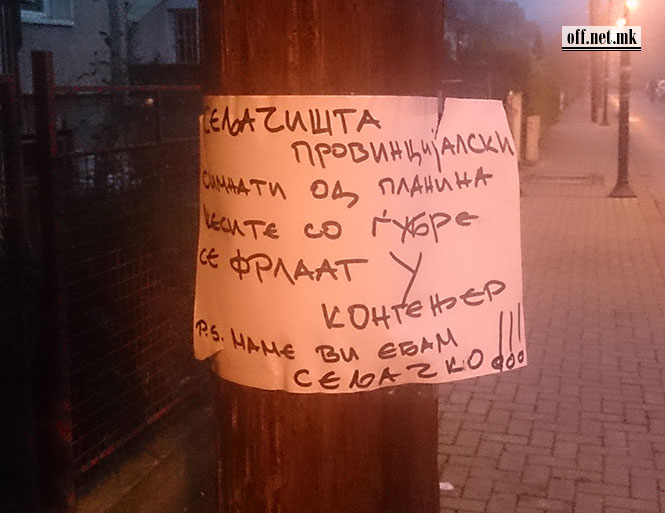 off.net.mk
СЕЉАЧИШТА
ПРОВИНЦИЈАЛСКИ
СИМНАТИ ОД ПЛАНИНА
ЌЕСИТЕ СО ЃУБРЕ
СЕ ФРЛААТ У
КОНТЕЊЕР
P.S. МАМЕ ВИ ЕБАМ
СЕЉАЧКО!!!